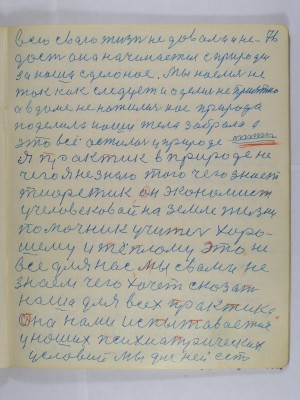 всю свою жизнь не довали и не- 76
дост она начинается с природы
за наша сделоное. Мы поелися не
так как следует и одели не приятно
а в доме не пожилися нас природа
поделила наши тела забрала а
это всё осталося у природе
Я практик в природе не
чего я не знаю того чего знает
тиоретик он экономист
у человековай на земле жизни
помочник учител хоро-
шему и тёплому Это не
все для нас мы с вами не
знаем чего хочет сказать
наша для всех практика.
Она нами испытовается
у наших психиатрических
условий мы для ней ест